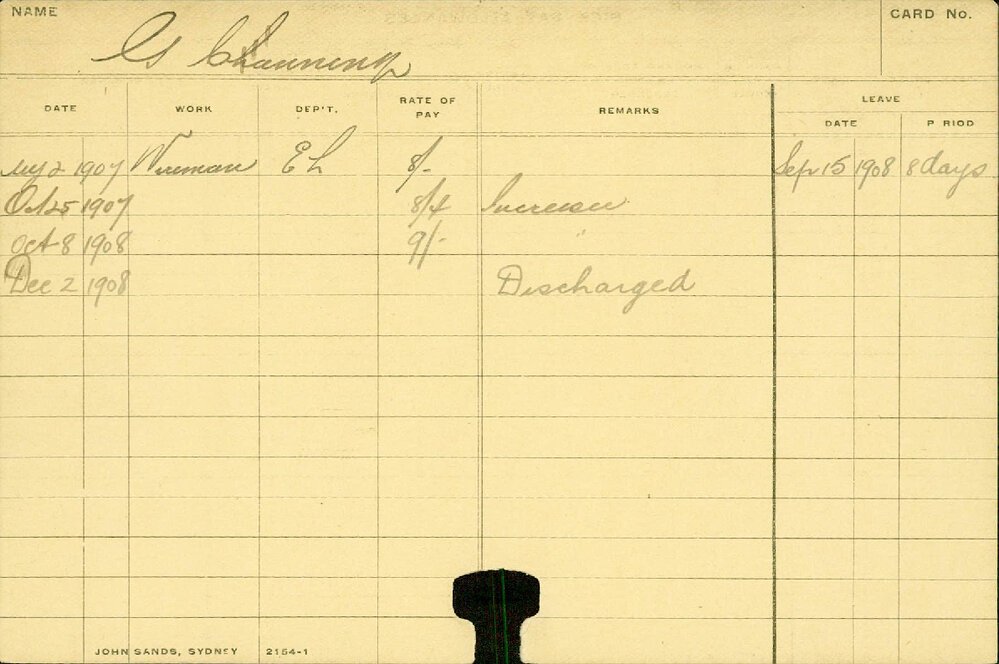 NAME
G Channing
CARD No.
DATE WORK DEP'T. RATE OF PAY REMARKS LEAVE
DATE P RIOD
2 1907 Wireman E L 8/- Sep 15 1908 8 days
Oct 25 1907 8/4 Increase
Oct 8 1908 9/- "
Dec 2 1908 Discharged
JOHN SANDS, SYDNEY 2154-1